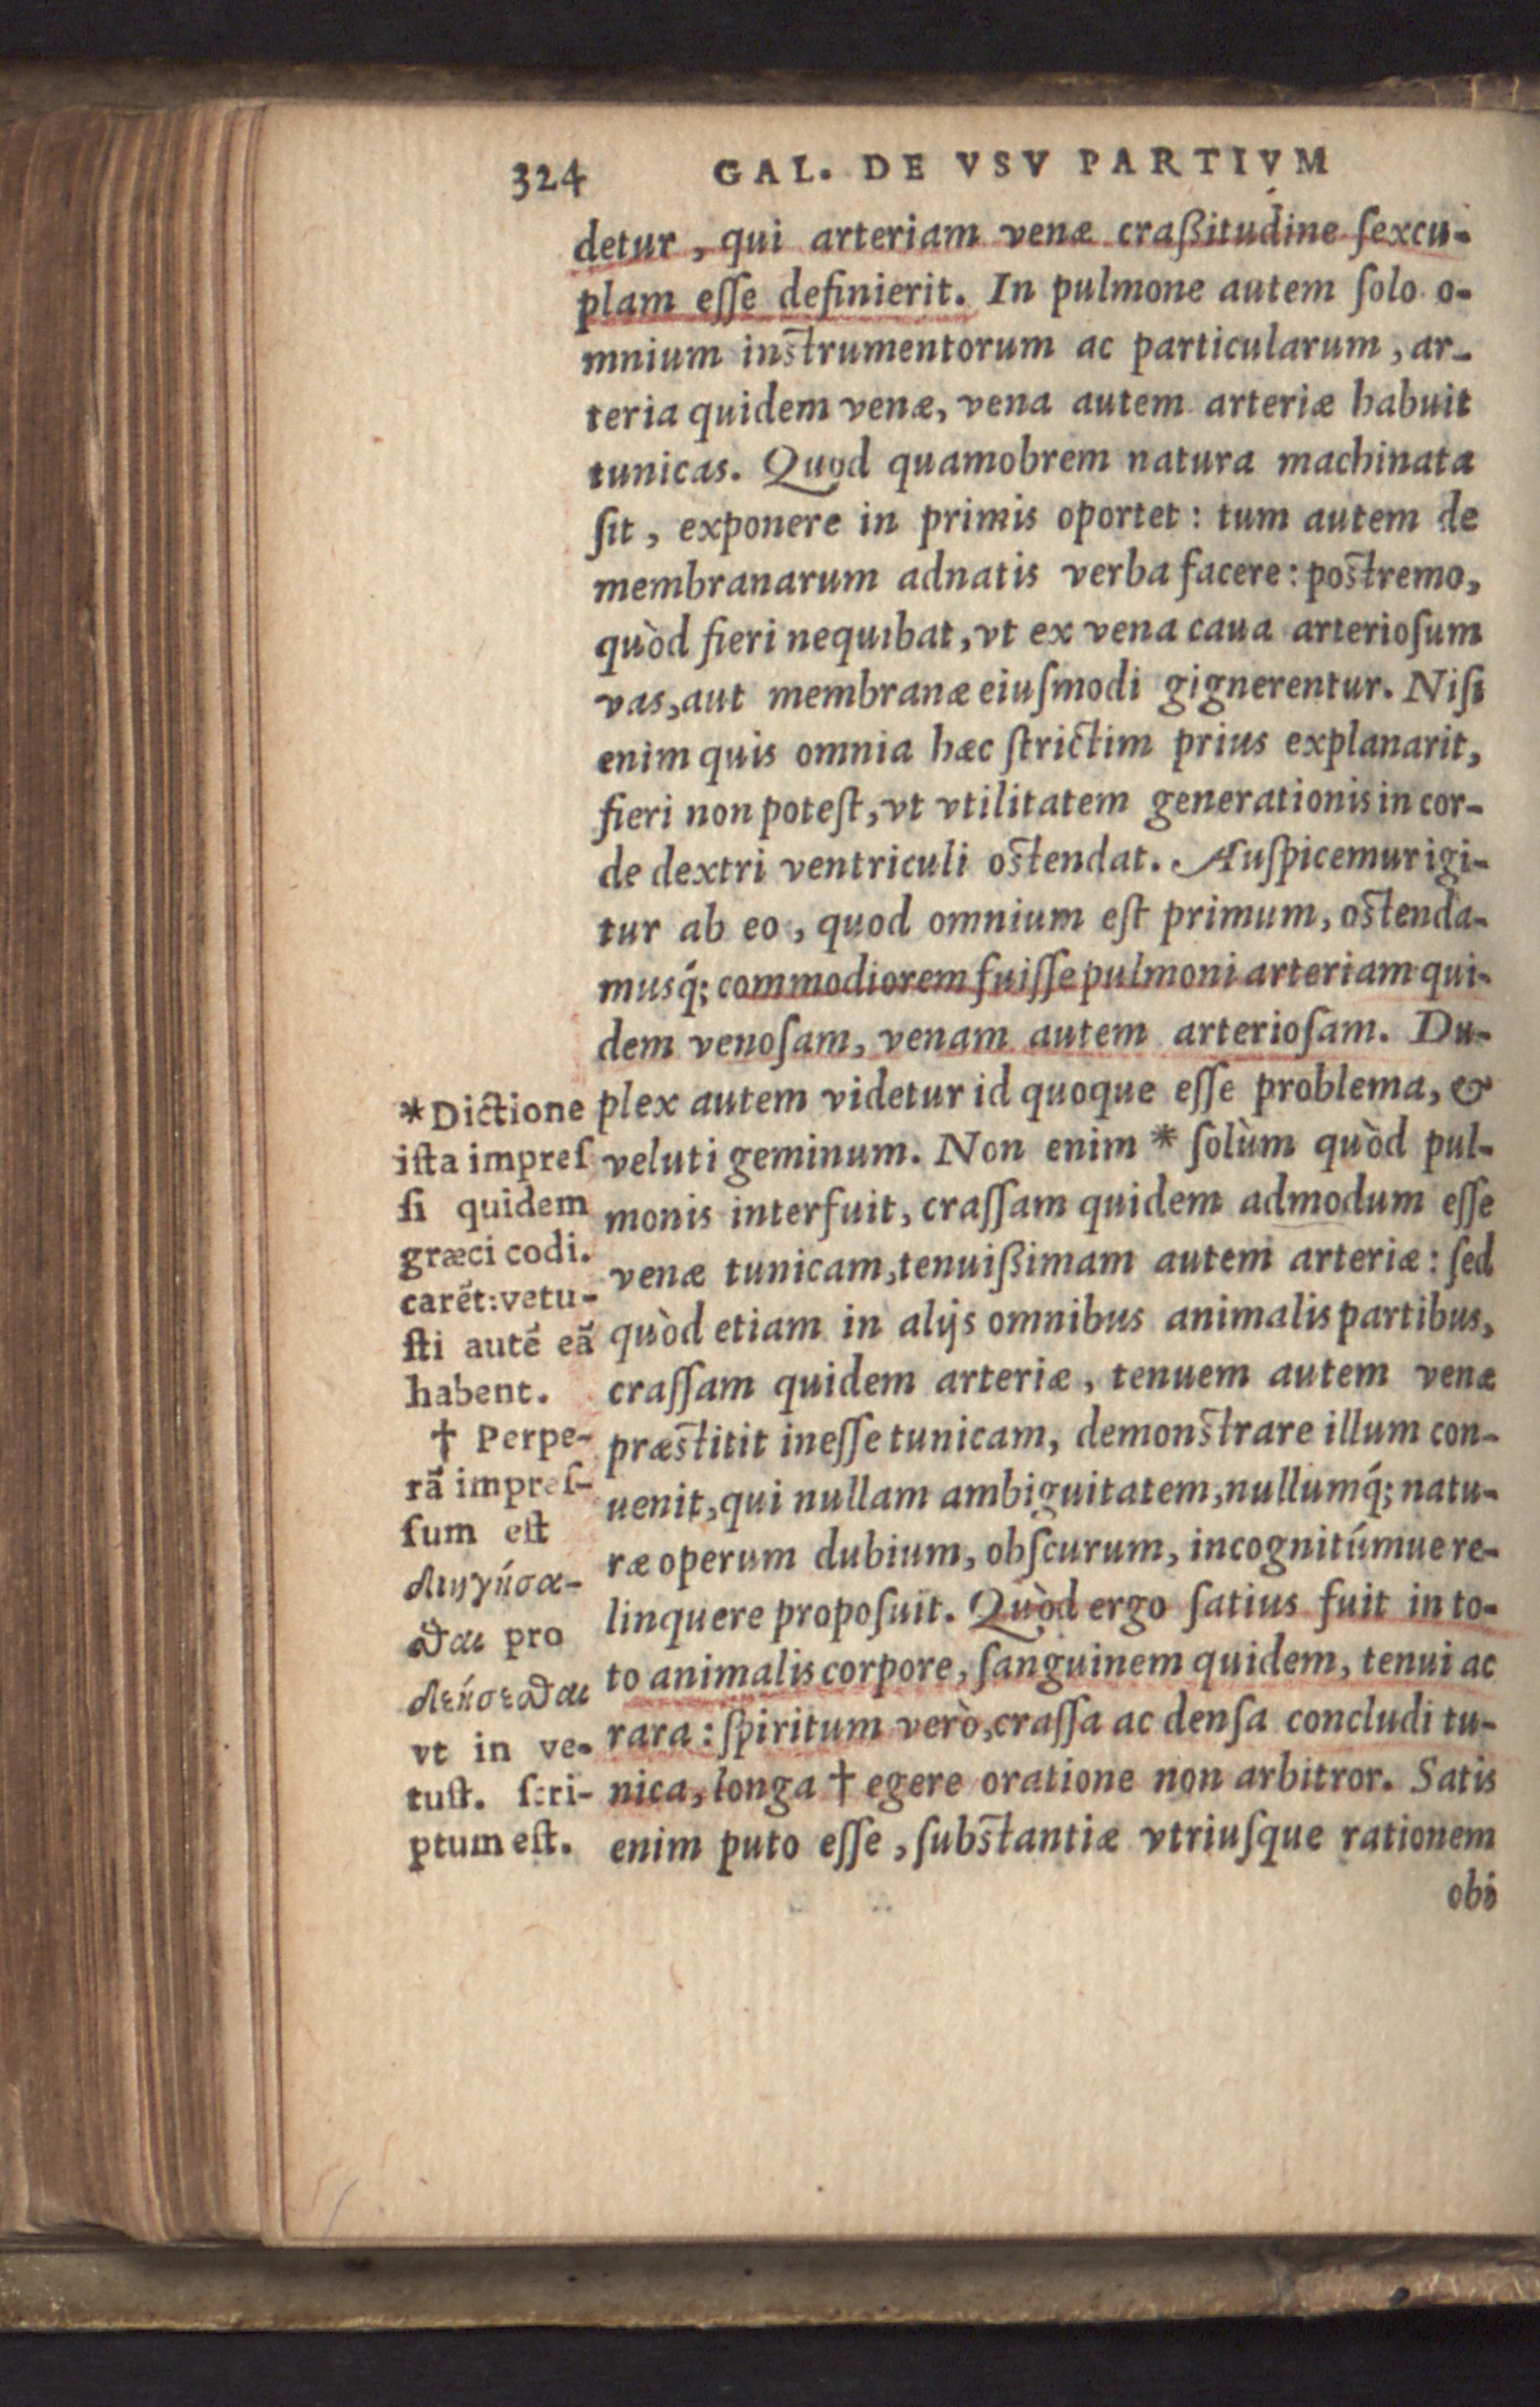 324 GAL. DE VSV PARTIVM
detur, qui arteriam venæ craßitudine ſexcu-
plam eſſe definierit. In pulmone autem ſolo o-
mnium inſtrumentorum ac particularum, ar-
teria quidem venæ, vena autem arteriæ habuit
tunicas. Quod quamobrem natura machinata
ſit, exponere in primis oportet: tum autem de
membranarum adnatis verba facere: poſtremo,
quòd fieri nequibat, vt ex vena caua arterioſum
vas, aut membranæ eiuſmodi gignerentur. Niſi
enim quis omnia hæc ſtrictim prius explanarit,
fieri non poteſt, vt vtilitatem generationis in cor-
de dextri ventriculi oſtendat. Auſpicemur igi-
tur ab eo, quod omnium eſt primum, oſtenda-
musq́; commodiorem fuiſſe pulmoni arteriam qui-
dem venoſam, venam autem arterioſam. Du-
plex autem videtur id quoque eſſe problema, &
veluti geminum. Non enim * ſolùm quòd pul-
monis interfuit, craſſam quidem admodum eſſe
venæ tunicam, tenuißimam autem arteriæ: ſed
quòd etiam in alijs omnibus animalis partibus,
craſſam quidem arteriæ, tenuem autem venæ
præſtitit ineſſe tunicam, demonſtrare illum con-
uenit, qui nullam ambiguitatem, nullumq́; natu-
ræ operum dubium, obſcurum, incognitúmue re-
linquere propoſuit. Quòd ergo ſatius fuit in to-
to animalis corpore, ſanguinem quidem, tenui ac
rara: ſpiritum verò, craſſa ac denſa concludi tu-
nica, longa † egere oratione non arbitror. Satis
enim puto eſſe, ſubſtantiæ vtriuſque rationem
obi
*Dictione
iſta impreſ
ſi quidem
græci codi.
carẽt: vetu-
ſti autẽ eã
habent.
† Perpe-
rã impreſ-
ſum eſt
διηγήσα-
σθαι pro
δεήσεσθαι
vt in ve-
tuſt. ſcri-
ptum eſt.